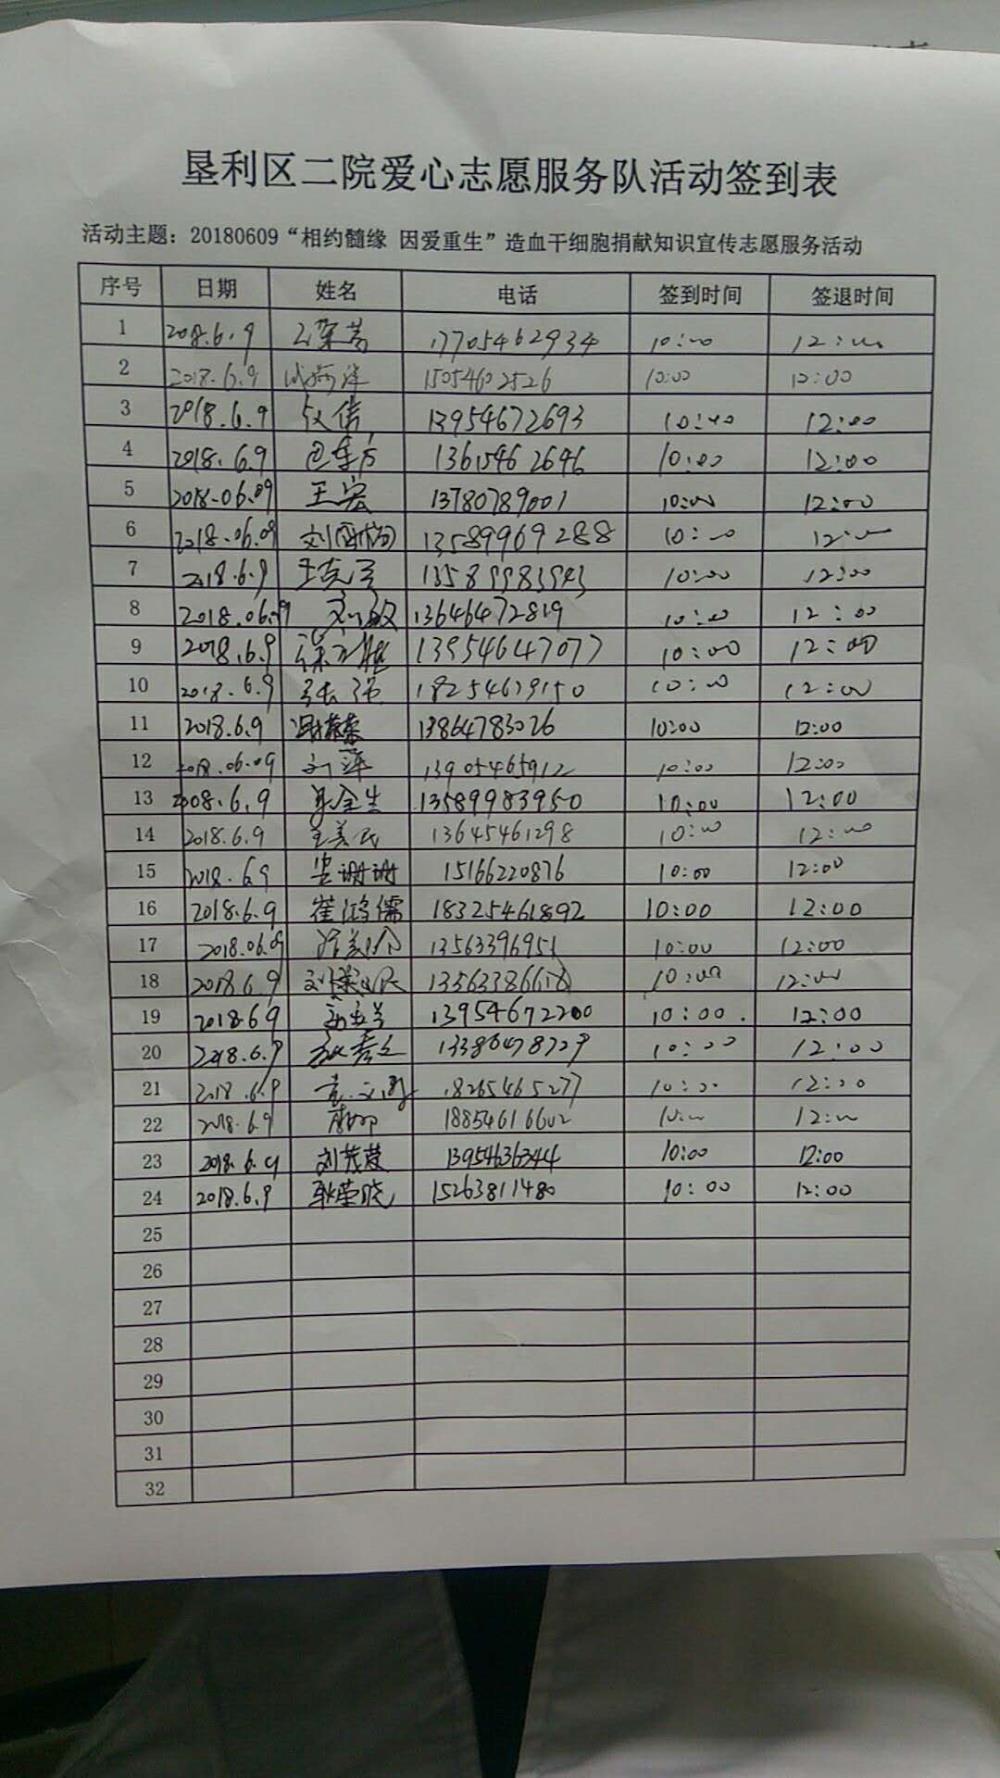 垦利区二院爱心志愿服务队活动签到表
活动主题：20180609“相约髓缘 因爱重生”造血干细胞捐献知识宣传志愿服务活动
序号 日期 姓名 电话 签到时间 签退时间
1 2018.6.9 17705462934 10:00 12:00
2 2018.6.9 15054602526 10:00 12:00
3 2018.6.9 13954672693 10:00 12:00
4 2018.6.9 13615462646 10:00 12:00
5 2018-06.09 王宏 13780789001 10:00 12:00
6 2018.06.09 13589969288 10:00 12:00
7 2018.6.9 13589983943 10:00 12:00
8 2018.06.09 刘敏 13646472819 10:00 12:00
9 2018.6.9 13954647077 10:00 12:00
10 2018.6.9 张强 18254679150 10:00 12:00
11 2018.6.9 13864783026 10:00 12:00
12 2018.06.09 刘萍 13905465912 10:00 12:00
13 2008.6.9 13589983950 10:00 12:00
14 2018.6.9 13645461298 10:00 12:00
15 2018.6.9 15166220876 10:00 12:00
16 2018.6.9 崔鸿儒 18325461892 10:00 12:00
17 2018.06.09 13563396951 10:00 12:00
18 2018.6.9 10:00 12:00
19 2018.6.9 13954672200 10:00 12:00
20 2018.6.9 13386478729 10:00 12:00
21 2018.6.9 18265465277 10:00 12:00
22 2018.6.9 18854616602 10:00 12:00
23 2018.6.9 刘茂茂 13954636344 10:00 12:00
24 2018.6.9 耿莹晓 15263811480 10:00 12:00
25
26
27
28
29
30
31
32